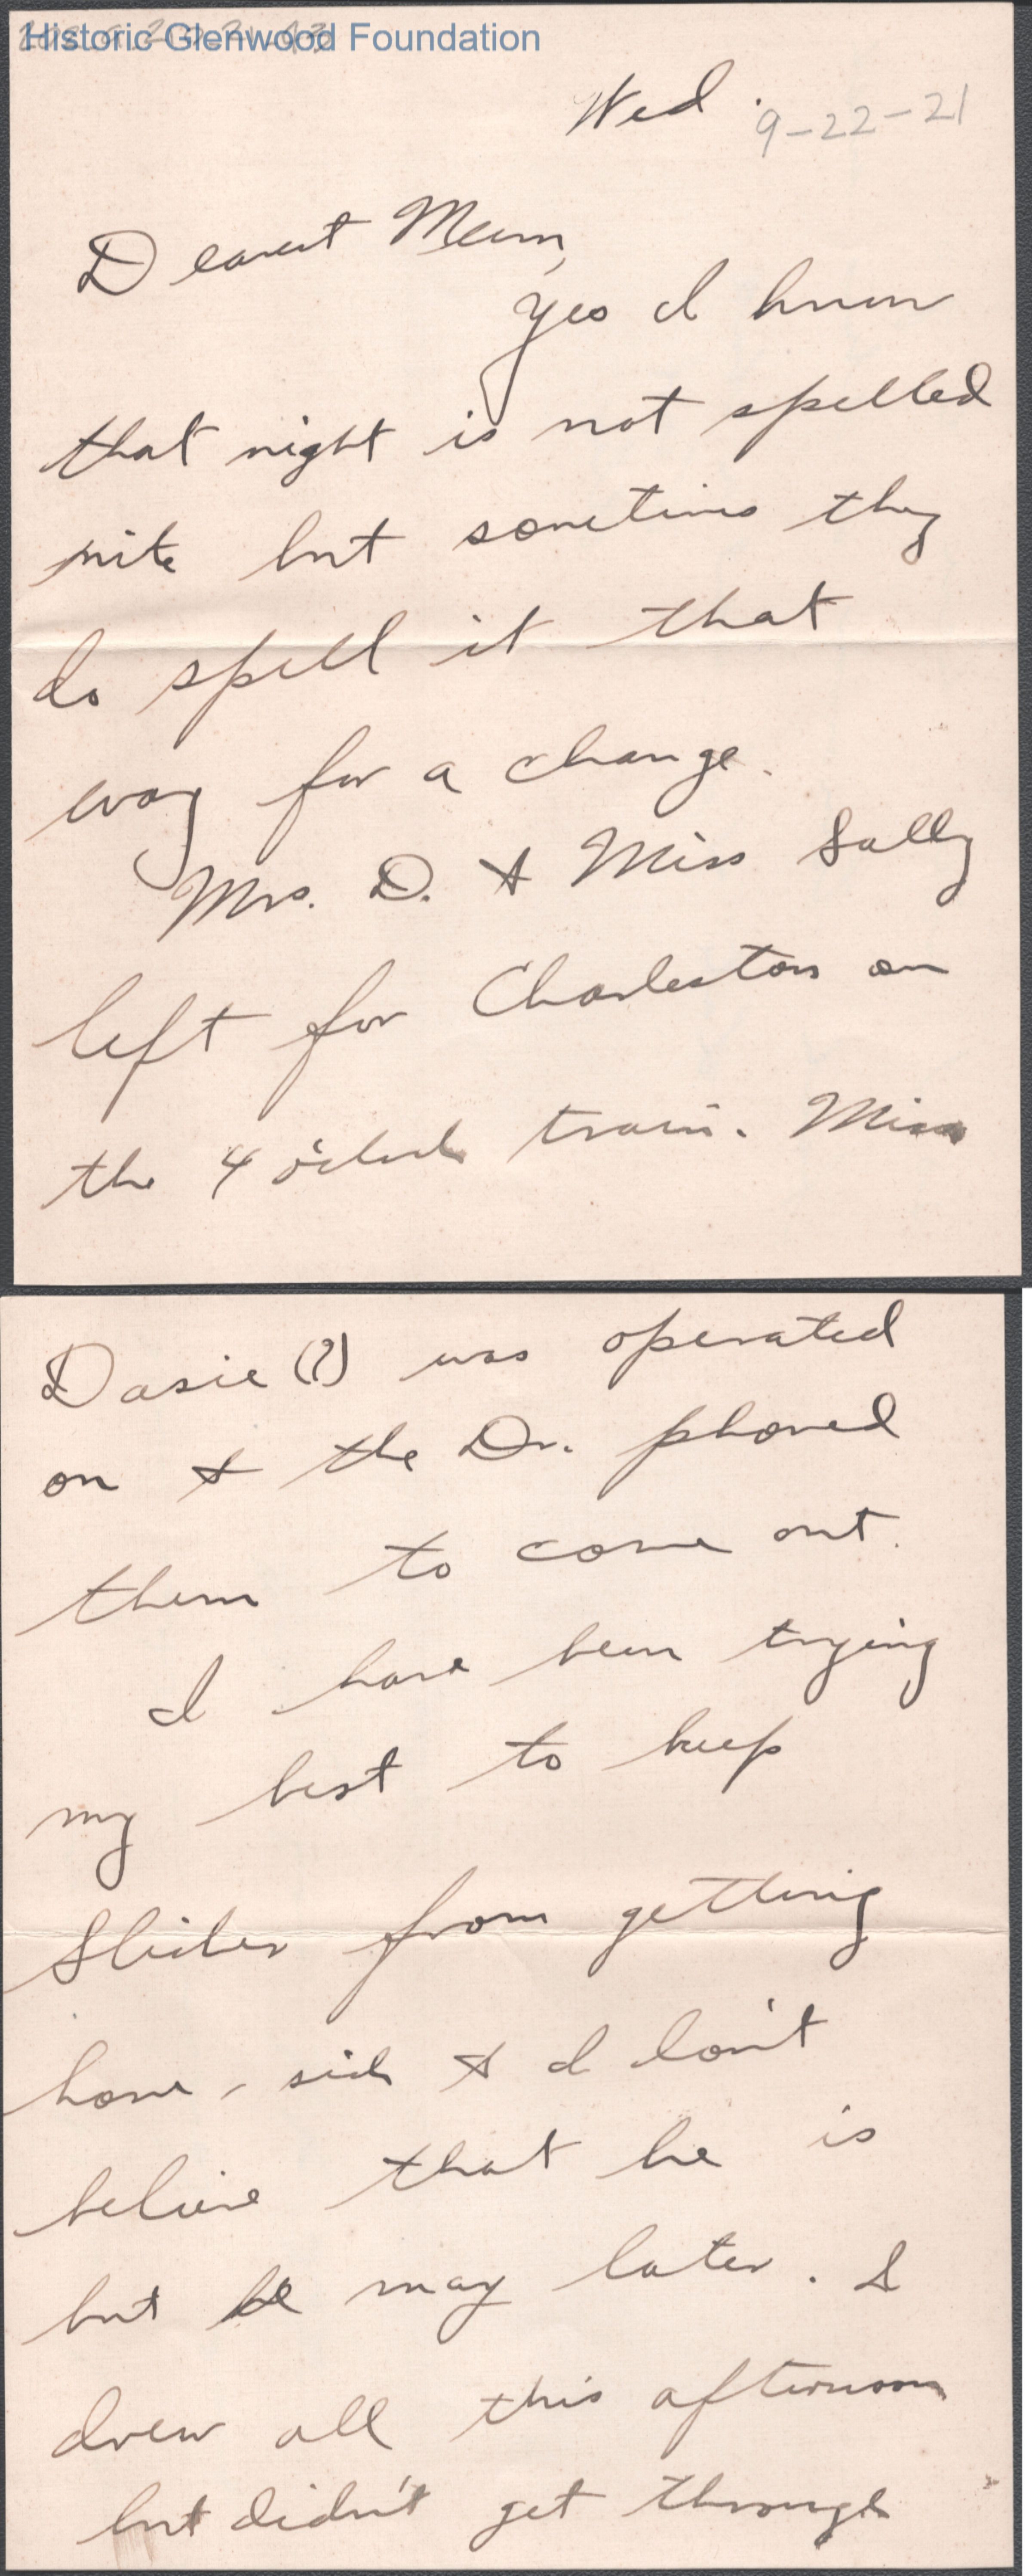 Historic Glenwood Foundation
Wed. 9-22-21
Dearest Mum,
Yes I know
that night is not spelled
nite but sometimes they
do spell it that
way for a change.
Mrs. D. & Miss Sally
left for Charleston on
the 4 o'clock train. Miss
Dasie (?) was operated
on & the Dr. phoned
them to come out.
I have been trying
my best to keep
from getting
home-sick & I don't
believe that he is
but he may later. I
drew all this afternoon
but didn't get through